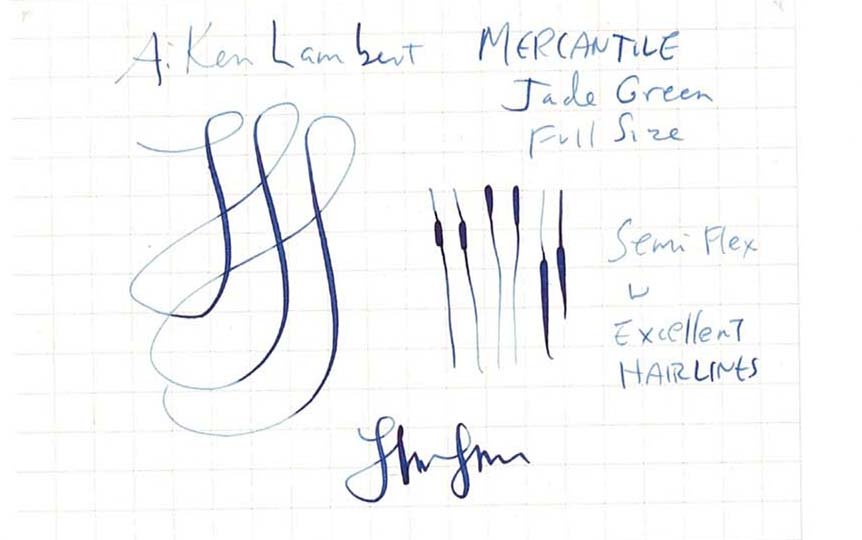 Aiken Lambert
MERCANTILE
Jade Green
Full Size
Semi Flex
w
Excellent
HAIRLINES